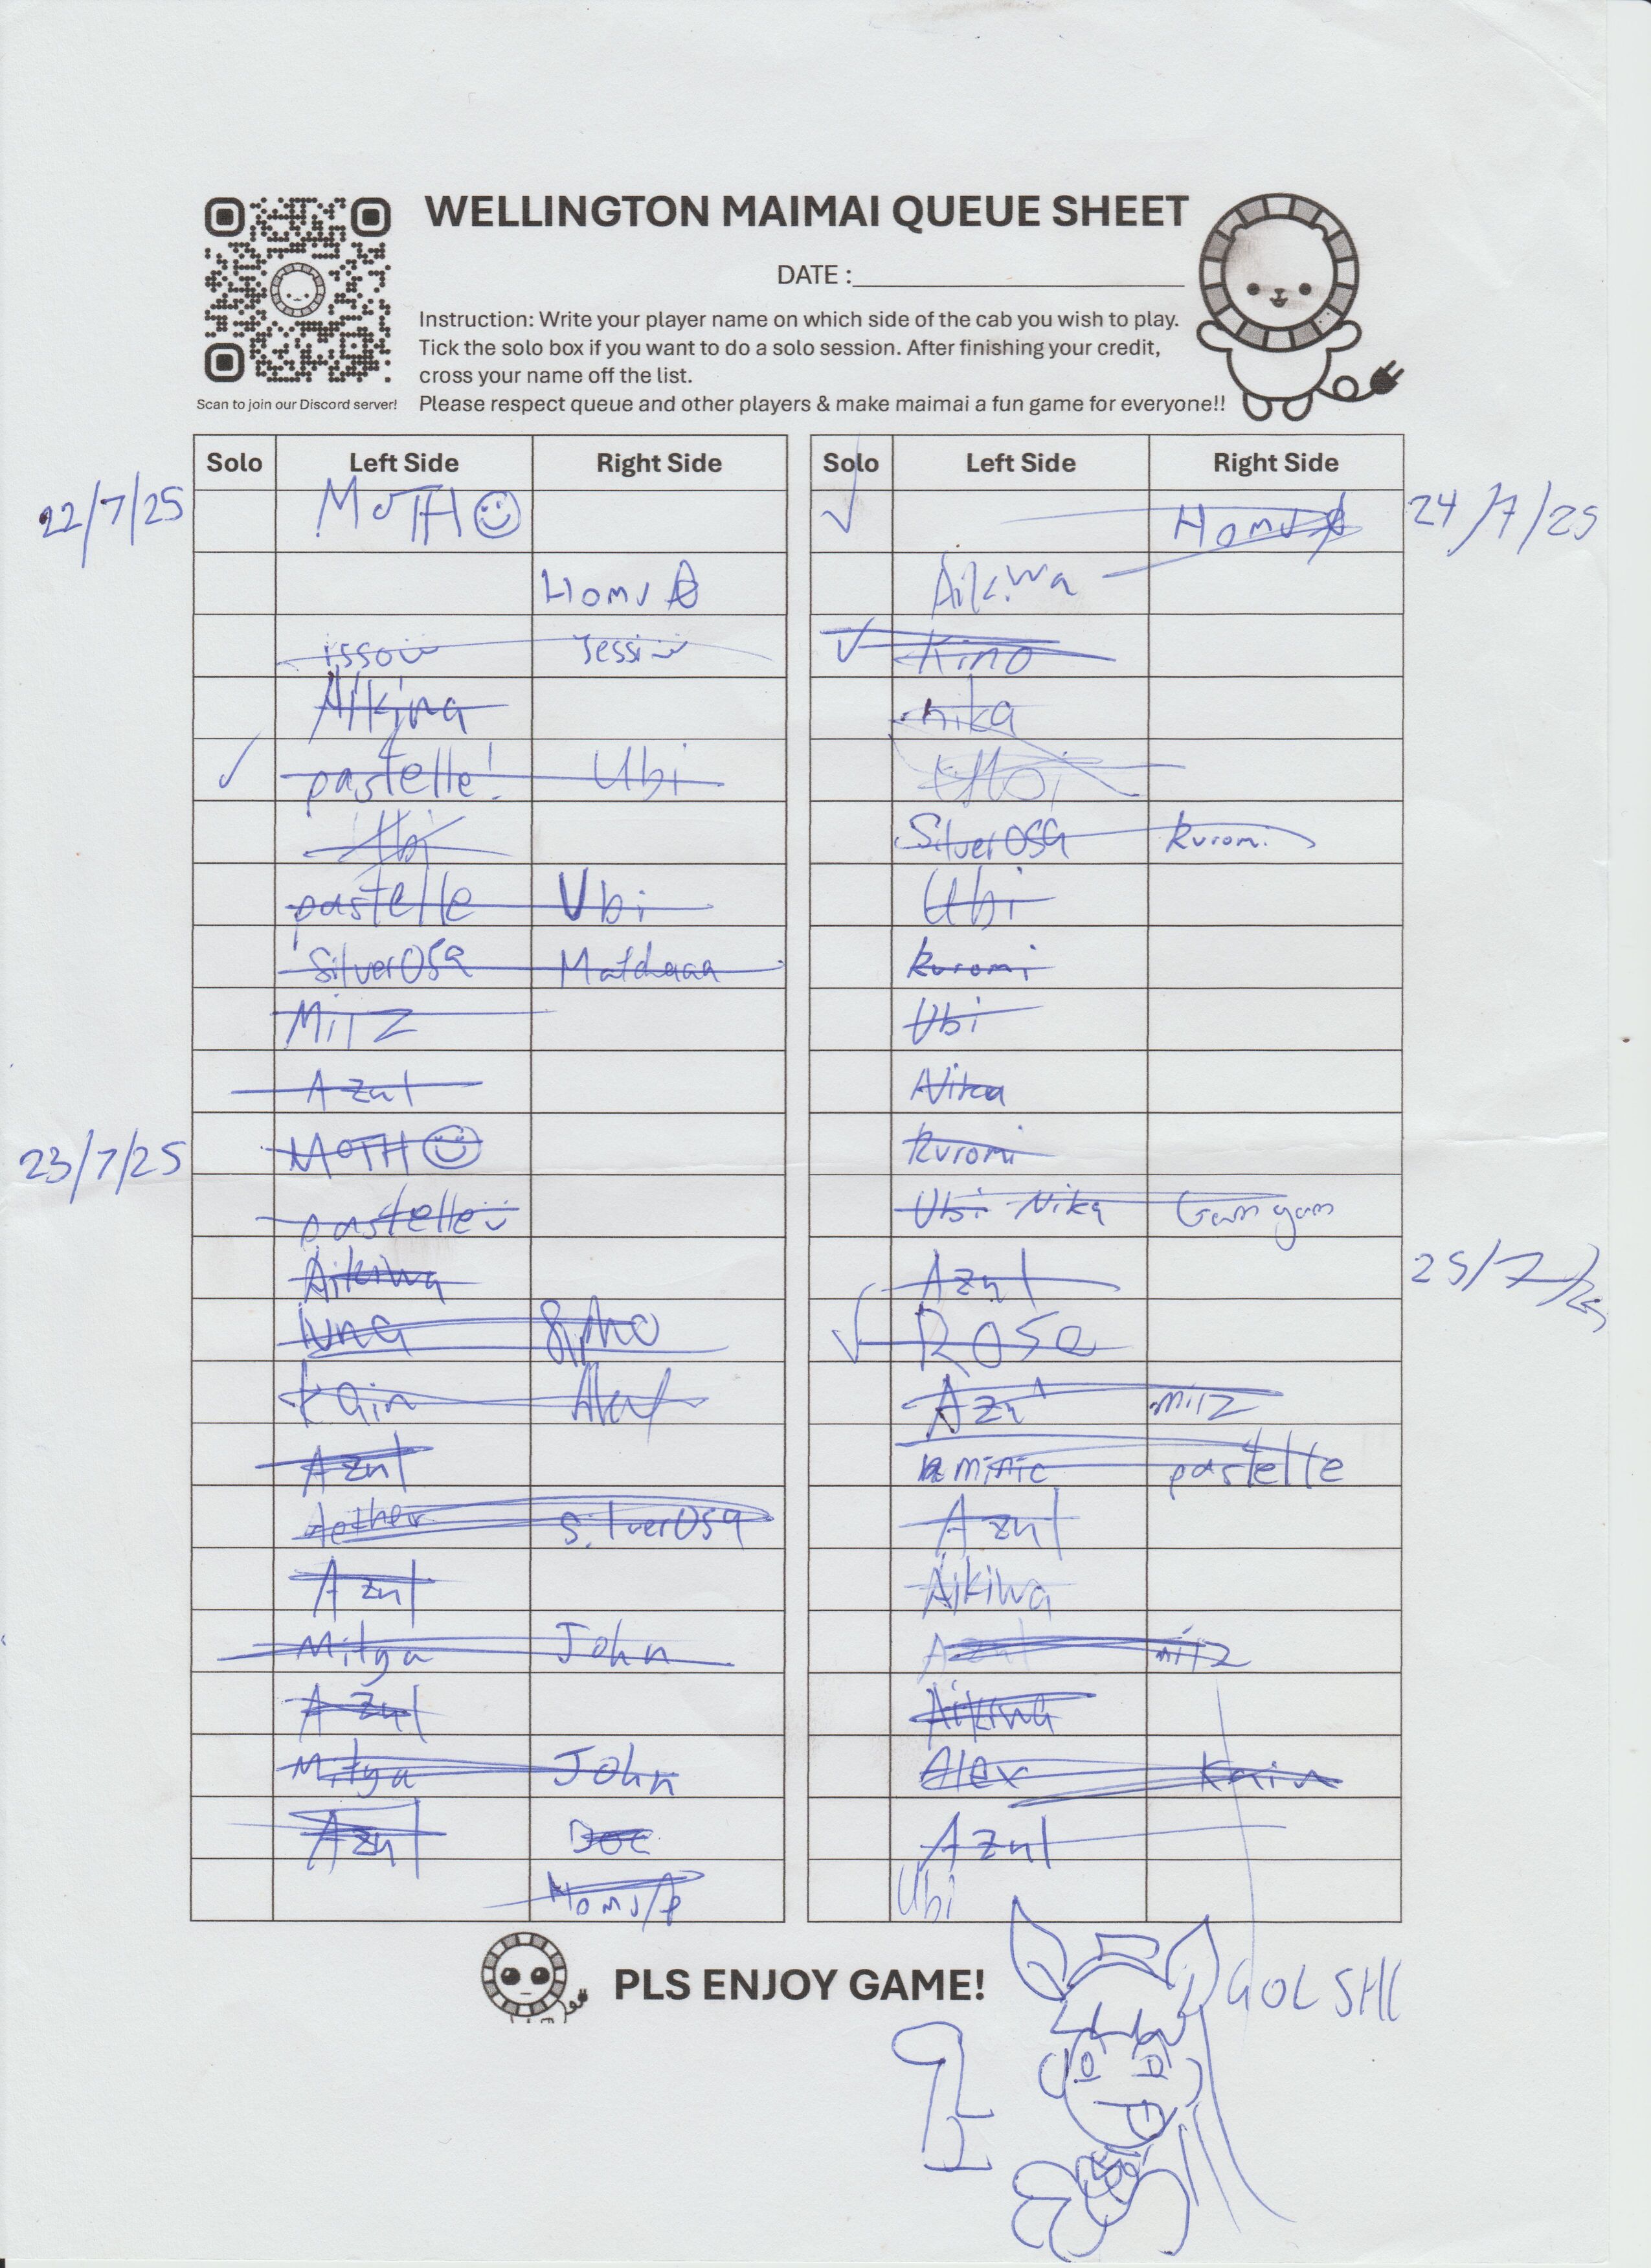 WELLINGTON MAIMAI QUEUE SHEET
DATE :
Instruction: Write your player name on which side of the cab you wish to play.
Tick the solo box if you want to do a solo session. After finishing your credit,
cross your name off the list.
Please respect queue and other players & make maimai a fun game for everyone!!
Scan to join our Discord server!
Solo Left Side Right Side
22/7/25 MOTH
Homu
issou Jessi
Aikiwa
✓ pastelle! Ubi
Ubi
pastelle Ubi
Silver059 Matchaaa
MiTZ
Azul
23/7/25 MOTH
pastelle
Aikiwa
luna
Kain
Azul
Aether Silver059
Azul
Mitya John
Azul
Mitya John
Azul DOE
Homu
Solo Left Side Right Side
✓ Homu 24/7/25
Aikiwa
✓ Kino
nika
Ubi
Silver059 Kuromi
Ubi
Kuromi
Ubi
Nika
Kuromi
Ubi Nika Gamgam
Azul 25/7/25
✓ Rose
Azul MiTZ
mimic pastelle
Azul
Aikiwa
Azul MiTZ
Aikiwa
Alex Kain
Azul
Ubi
PLS ENJOY GAME!
GOLSHI